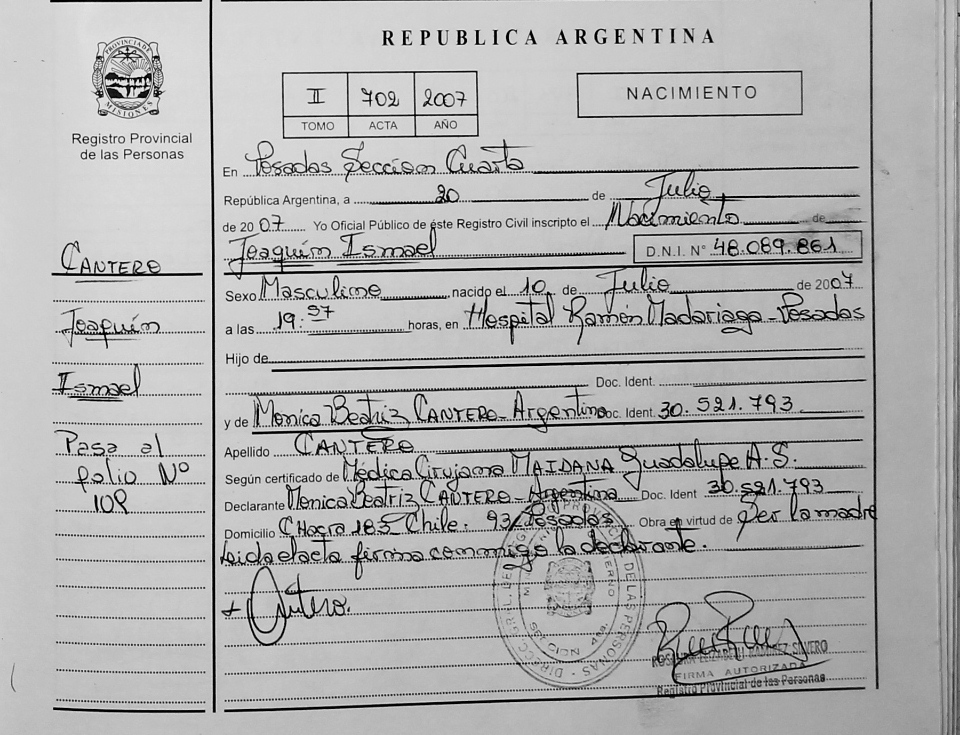 PROVINCIA DE
MISIONES
Registro Provincial
de las Personas
CANTERO
Joaquín
Ismael
Pasa al
folio Nº
109
REPUBLICA ARGENTINA
II 702 2007
TOMO ACTA AÑO
NACIMIENTO
En Posadas Sección Cuarta
República Argentina, a 20 de Julio
de 2007 Yo Oficial Público de éste Registro Civil inscripto el Nacimiento de
Joaquín Ismael D.N.I. Nº 48.089.861
Sexo Masculino nacido el 10 de Julio de 2007
a las 19:57 horas, en Hospital Ramón Madariaga - Posadas
Hijo de
Doc. Ident.
y de Monica Beatriz CANTERO - Argentina Doc. Ident. 30.521.793
Apellido CANTERO
Según certificado de Médica Cirujana MAIDANA Guadalupe A.S.
Declarante Monica Beatriz CANTERO - Argentina Doc. Ident 30.521.793
Domicilio Chacra 185 Chile. 93/Posadas Obra en virtud de Ser la madre
Leida el acta firma conmigo la declarante.
+ Cantero.
DE LAS PERSONAS
FIRMA AUTORIZADA
Registro Provincial de las Personas